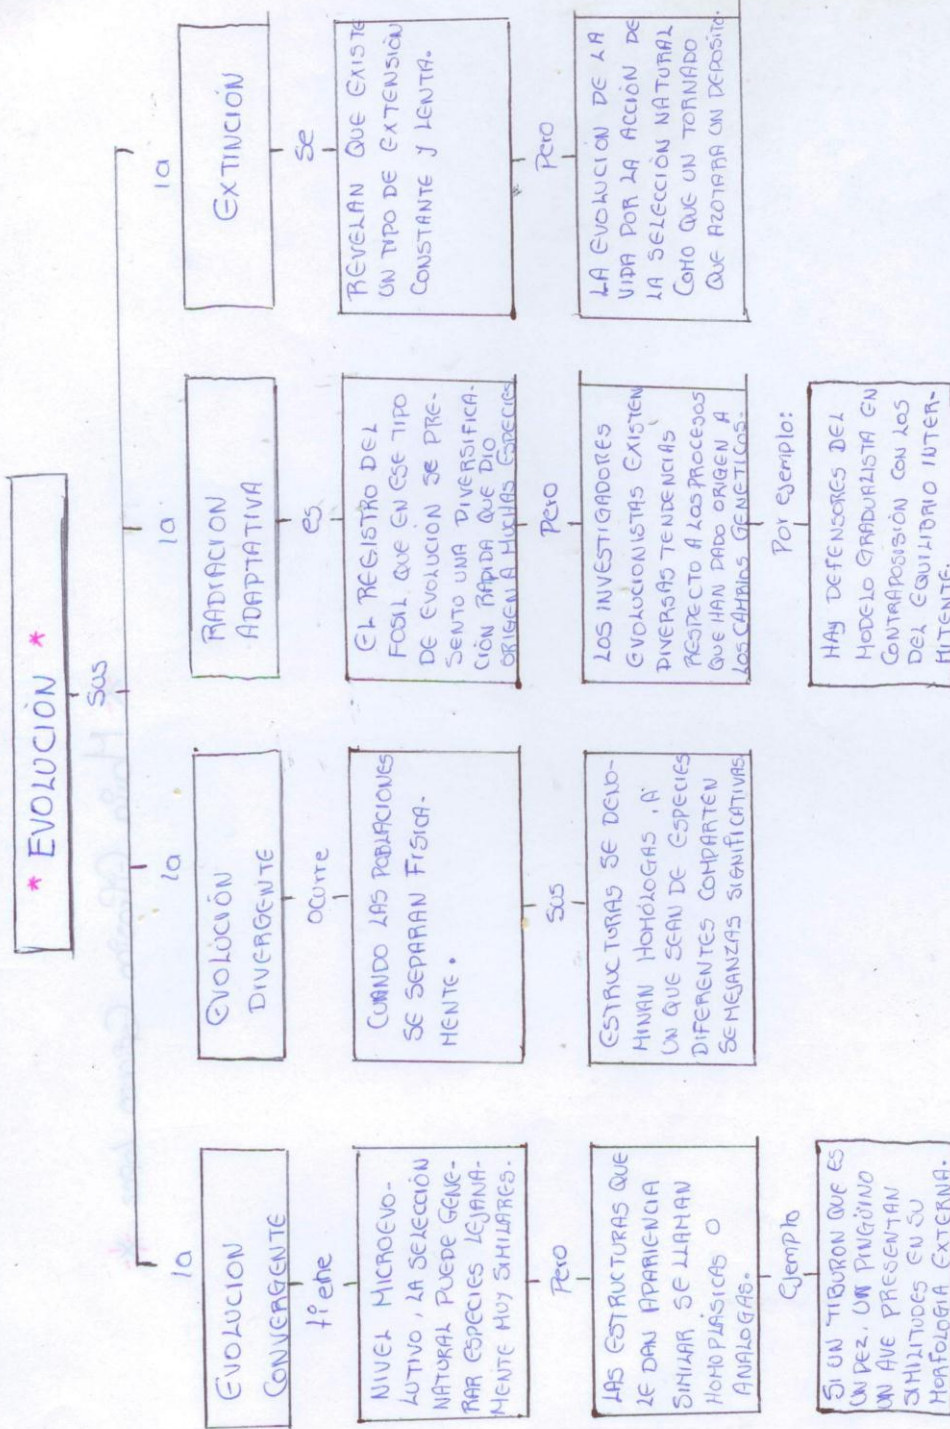 * EVOLUCIÓN *
SUS
la
EVOLUCION
CONVERGENTE
tiene
NIVEL MICROEVO-
LUTIVO, LA SELECCIÓN
NATURAL PUEDE GENE-
RAR ESPECIES LEJANA-
MENTE MUY SIMILARES.
Pero
LAS ESTRUCTURAS QUE
LE DAN APARIENCIA
SIMILAR SE LLAMAN
HOMOPLÁSICAS O
ANALOGAS.
Ejemplo
SI UN TIBURON QUE ES
UN PEZ, UN PINGÜINO
UN AVE PRESENTAN
SIMILITUDES EN SU
MORFOLOGIA EXTERNA.
la
EVOLUCIÓN
DIVERGENTE
ocurre
CUANDO LAS POBLACIONES
SE SEPARAN FISICA-
MENTE.
SUS
ESTRUCTURAS SE DENO-
MINAN HOMÓLOGAS, A
UN QUE SEAN DE ESPECIES
DIFERENTES COMPARTEN
SEMEJANZAS SIGNIFICATIVAS.
la
RADIACION
ADAPTATIVA
es
EL REGISTRO DEL
FOSIL QUE EN ESE TIPO
DE EVOLUCION SE PRE-
SENTO UNA DIVERSIFICA-
CIÓN RAPIDA QUE DIO
ORIGEN A MUCHAS ESPECIES
Pero
LOS INVESTIGADORES
EVOLUCIONISTAS EXISTEN
DIVERSAS TENDENCIAS
RESPECTO A LOS PROCESOS
QUE HAN DADO ORIGEN A
LOS CAMBIOS GENETICOS.
Por ejemplo:
HAY DEFENSORES DEL
MODELO GRADUALISTA EN
CONTRAPOSISIÓN CON LOS
DEL EQUILIBRIO INTER-
MITENTE.
la
EXTINCIÓN
se
REVELAN QUE EXISTE
UN TIPO DE EXTENSIÓN
CONSTANTE Y LENTA.
Pero
LA EVOLUCION DE LA
VIDA POR LA ACCIÓN DE
LA SELECCIÓN NATURAL
COMO QUE UN TORNADO
QUE AZOTARA UN DEPOSITO.